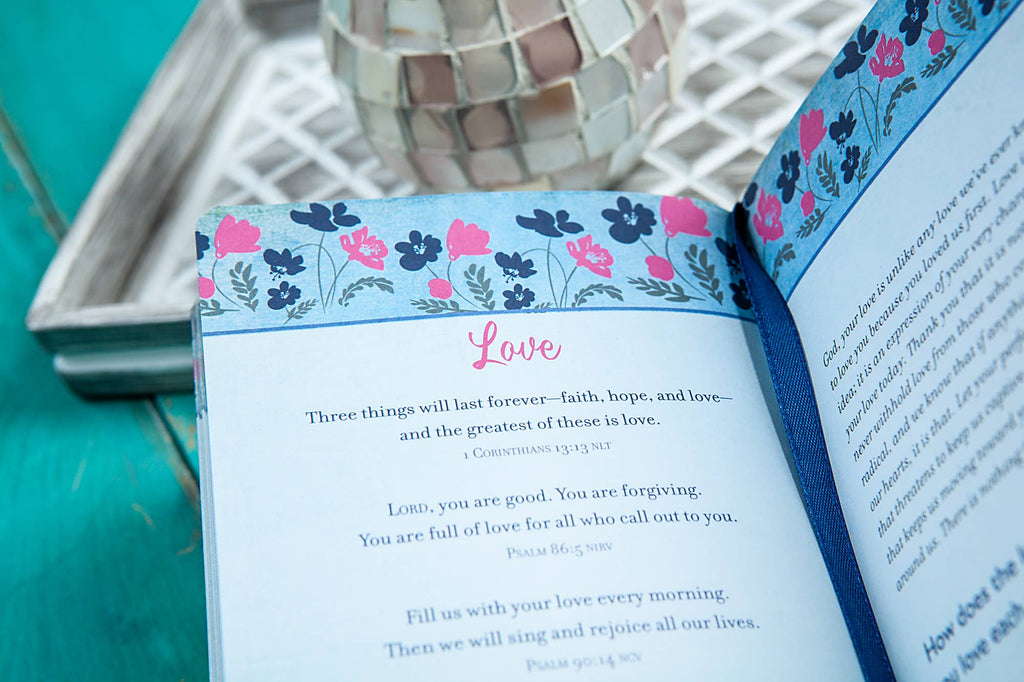 Love
Three things will last forever—faith, hope, and love—
and the greatest of these is love.
1 Corinthians 13:13 NLT
Lord, you are good. You are forgiving.
You are full of love for all who call out to you.
Psalm 86:5 NIRV
Fill us with your love every morning.
Then we will sing and rejoice all our lives.
Psalm 90:14 NCV
God, your love is unlike any love we've ever
to love you because you loved us first. Love
idea; it is an expression of your very
your love today. Thank you that it is
never withhold love from those who
radical, and we know that if
our hearts, it is that. Let your
that threatens to keep us
that keeps us moving toward
around us. There is nothing
How does the
you love each